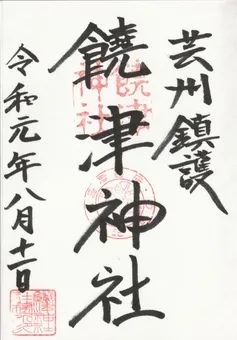 芸州鎮護
饒津神社
令和元年八月十一日